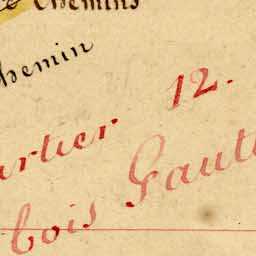 Chemins
hemin
artier 12.
bois Gaut